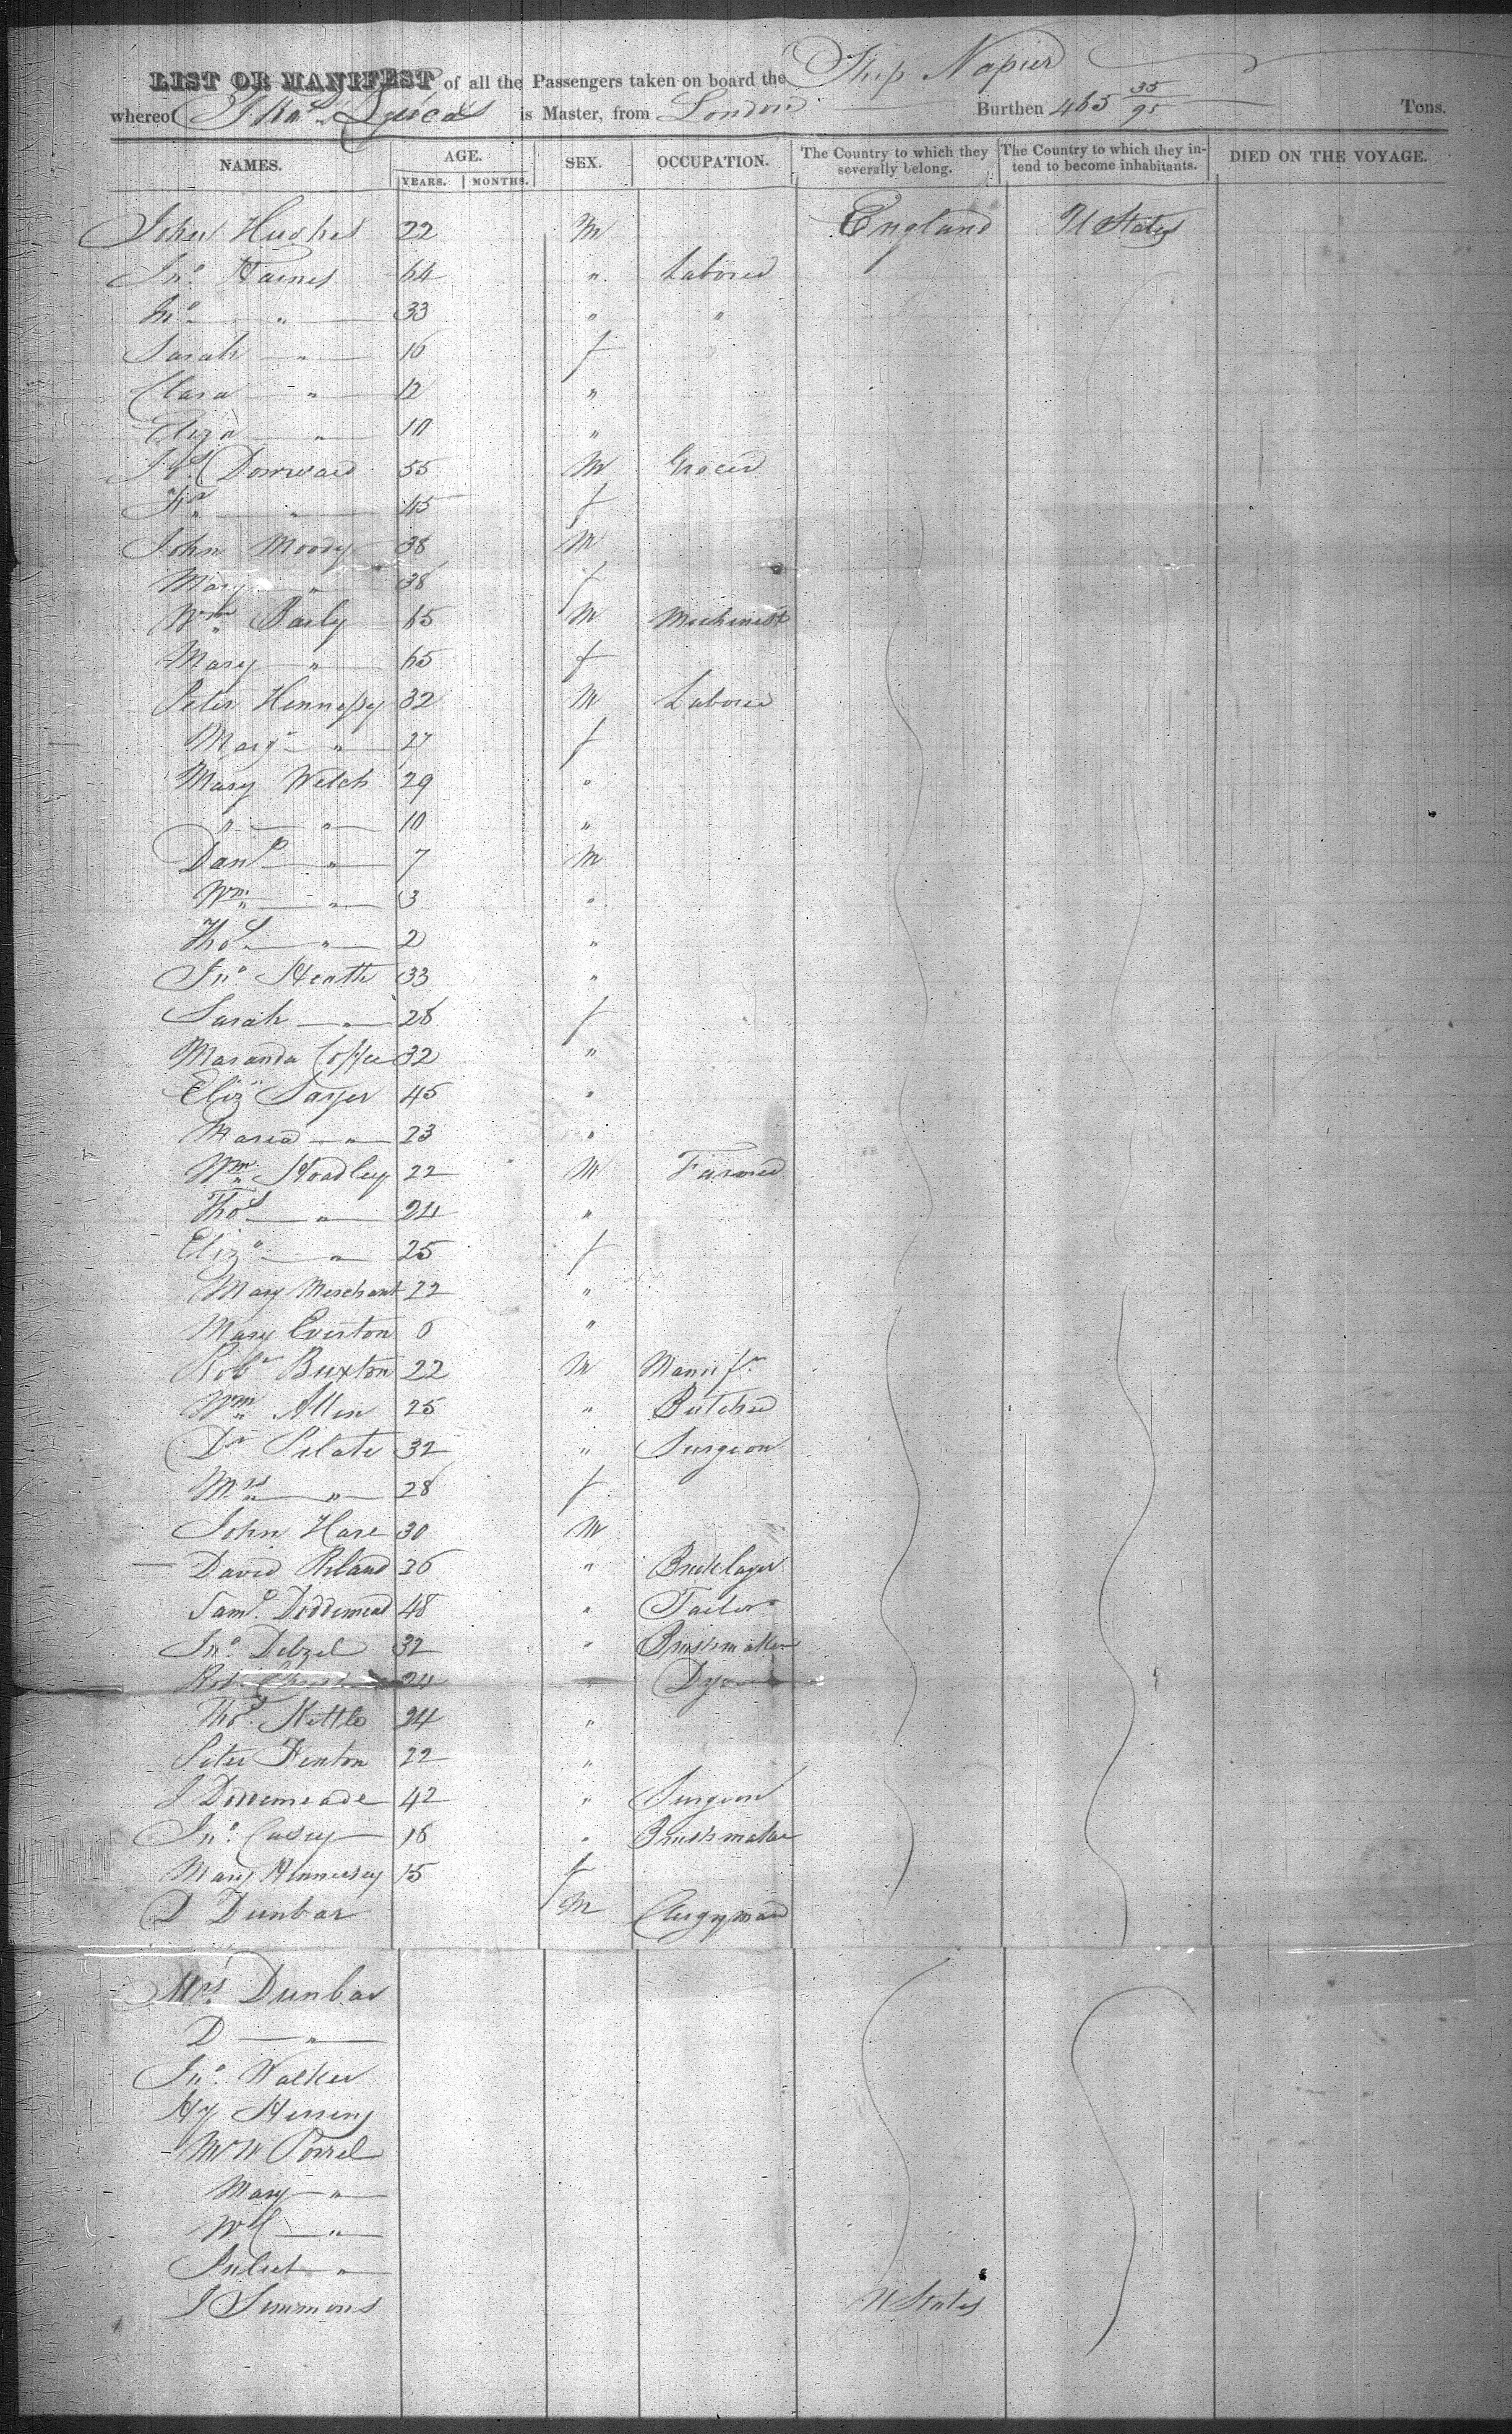 LIST OR MANIFEST of all the Passengers taken on board the Ship Napier
whereof Thos Lucas is Master, from London Burthen 465 35/95 Tons.
NAMES. AGE. SEX. OCCUPATION. The Country to which they severally belong. The Country to which they intend to become inhabitants. DIED ON THE VOYAGE.
YEARS. MONTHS.
John Hughes 22 M England U States
Jno. Haines 64 " Laborer
Jno " 33 " "
Sarah " 16 f
Clara " 12 "
Eliza " 10 "
Dorrwaid 55 M Grocer
" 45 f
John Moody 38 M
Mary " 38 f
Wm Baily 65 M Mechinist
Mary " 65 f
Peter Hennessy 32 M Laborer
Mary " 27 f
Mary Welch 29 "
" " 10 "
Danl " 7 M
Wm " 3 "
Thos " 2 "
Jno Heath 33 "
Sarah " 28 f
Maranda Coffee 32 "
Eliz Sayer 45 "
Maria " 23 "
Wm Hoadley 22 M Farmer
Thos " 24 "
Eliz " 25 f
Mary Merchant 22 "
Mary Everton 6 "
Robt Buxton 22 M Manufr
Wm Allen 25 " Butcher
Dr Pilate 32 " Surgeon
Mrs " 28 f
John Hare 30 M
David Ryland 26 " Bricklayer
Saml. Doddemead 48 " Tailor
Jno Delzel 32 " Brushmaker
Robt 24 " Dyer
Thos. Kettle 24 "
Peter Fenton 22 "
J Doddemeade 42 " Surgeon
Jno. Casey 18 " Brushmaker
Mary Hennesey 15 f
D Dunbar M Clergyman
Mrs. Dunbar
D "
Jno. Walker
Hy Herring
Mr W Porrel
Mary "
Wm "
Juliet "
J Simmons U States